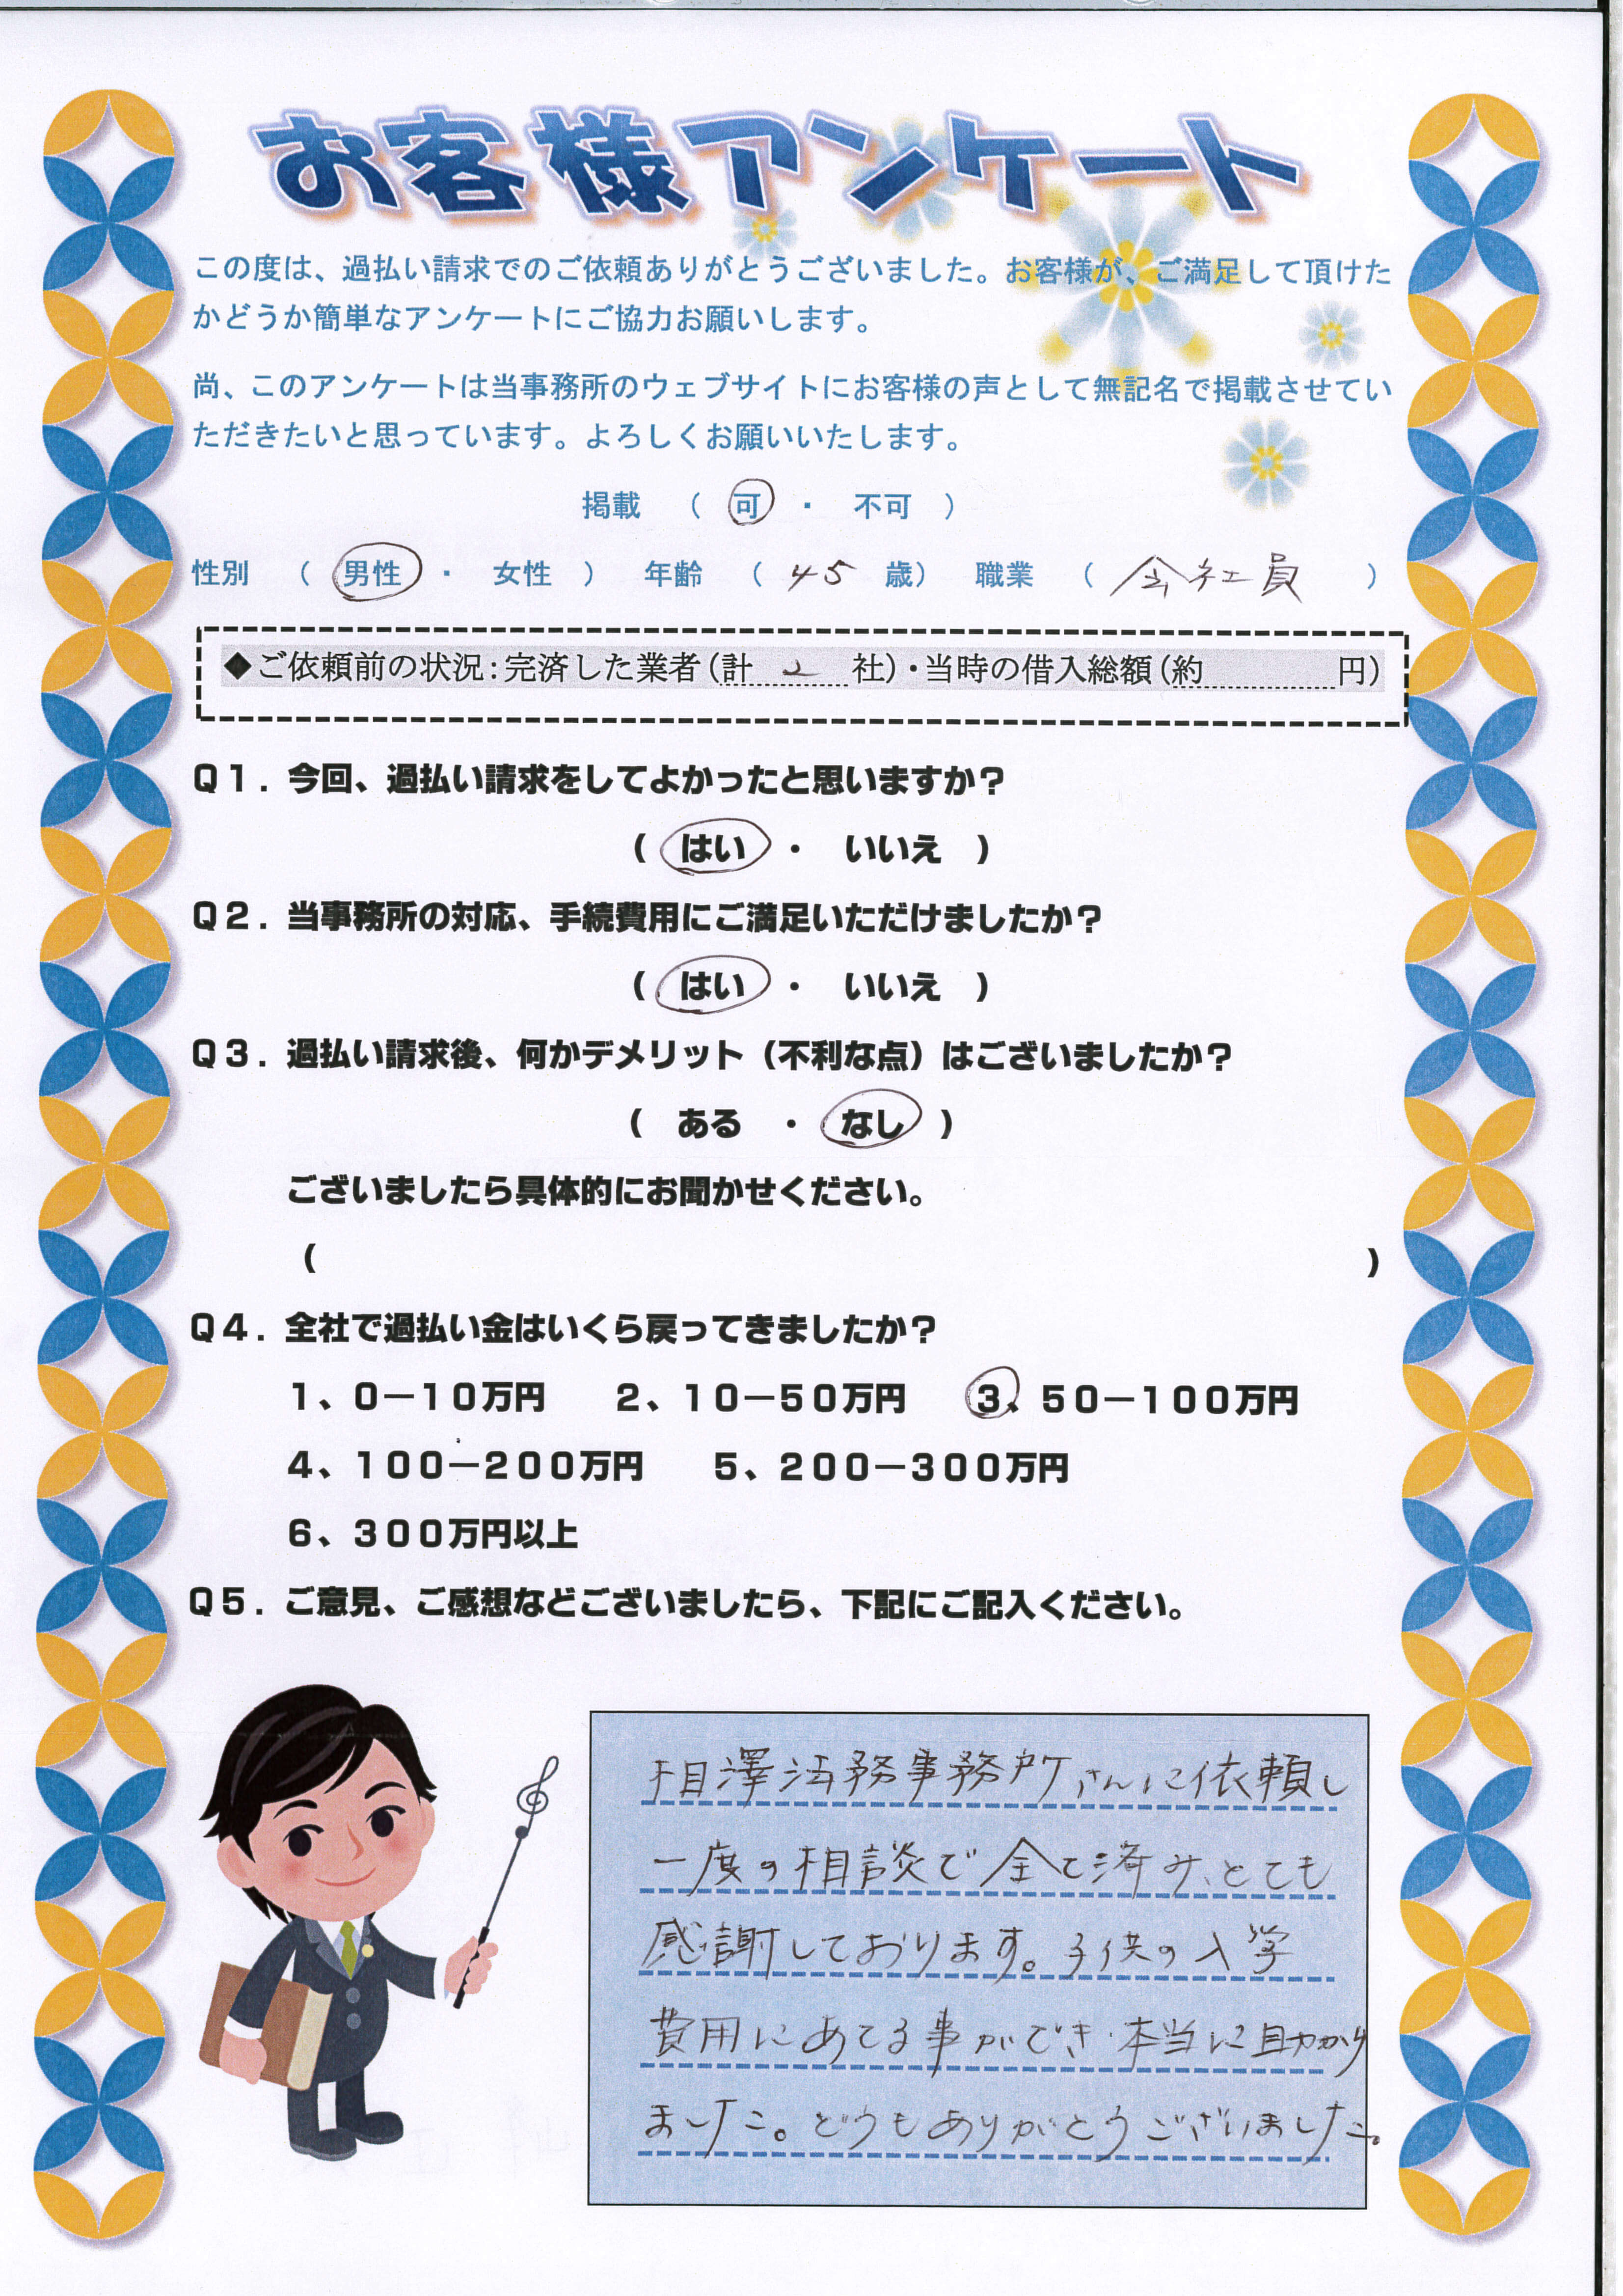 お客様アンケート
この度は、過払い請求でのご依頼ありがとうございました。お客様が、ご満足して頂けた
かどうか簡単なアンケートにご協力お願いします。
尚、このアンケートは当事務所のウェブサイトにお客様の声として無記名で掲載させてい
ただきたいと思っています。よろしくお願いいたします。
掲載 ( 可 ・ 不可 )
性別 ( 男性 ・ 女性 ) 年齢 ( 45 歳) 職業 ( 会社員 )
◆ご依頼前の状況:完済した業者(計 2 社)・当時の借入総額(約 円)
Q1. 今回、過払い請求をしてよかったと思いますか?
( はい ・ いいえ )
Q2. 当事務所の対応、手続費用にご満足いただけましたか?
( はい ・ いいえ )
Q3. 過払い請求後、何かデメリット(不利な点)はございましたか?
( ある ・ なし )
ございましたら具体的にお聞かせください。
( )
Q4. 全社で過払い金はいくら戻ってきましたか?
1、0-10万円 2、10-50万円 3、50-100万円
4、100-200万円 5、200-300万円
6、300万円以上
Q5. ご意見、ご感想などございましたら、下記にご記入ください。
相澤法務事務所さんに依頼し
一度の相談で全て済み、とても
感謝しております。子供の入学
費用にあてる事ができ、本当に助かり
ました。どうもありがとうございました。